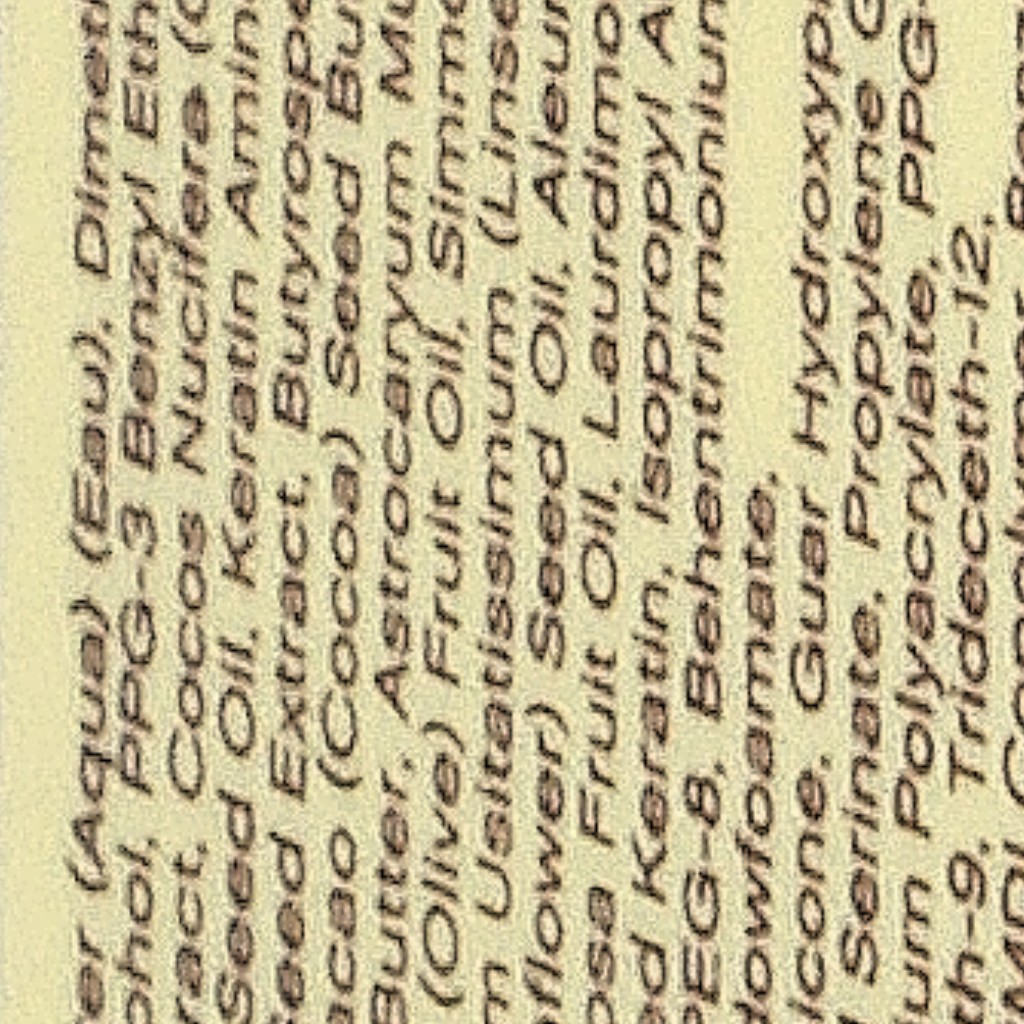 er (Aqua) (Eau), Dimeti
ohol, PPG-3 Benzyl Eth
ract, Cocos Nucifera (
Seed Oil, Keratin Amin
eed Extract, Butyrospe
acao (Cocoa) Seed But
Butter, Astrocaryum Mu
(Olive) Fruit Oil, Simmo
m Usitatissimum (Linse
flower) Seed Oil, Aleur
osa Fruit Oil, Laurdimo
ed Keratin, Isopropyl A
PEG-8, Behentrimonium
dowfoamate,
icone, Guar Hydroxypr
Serinate, Propylene G
ium Polyacrylate, PPG-
th-9, Trideceth-12,